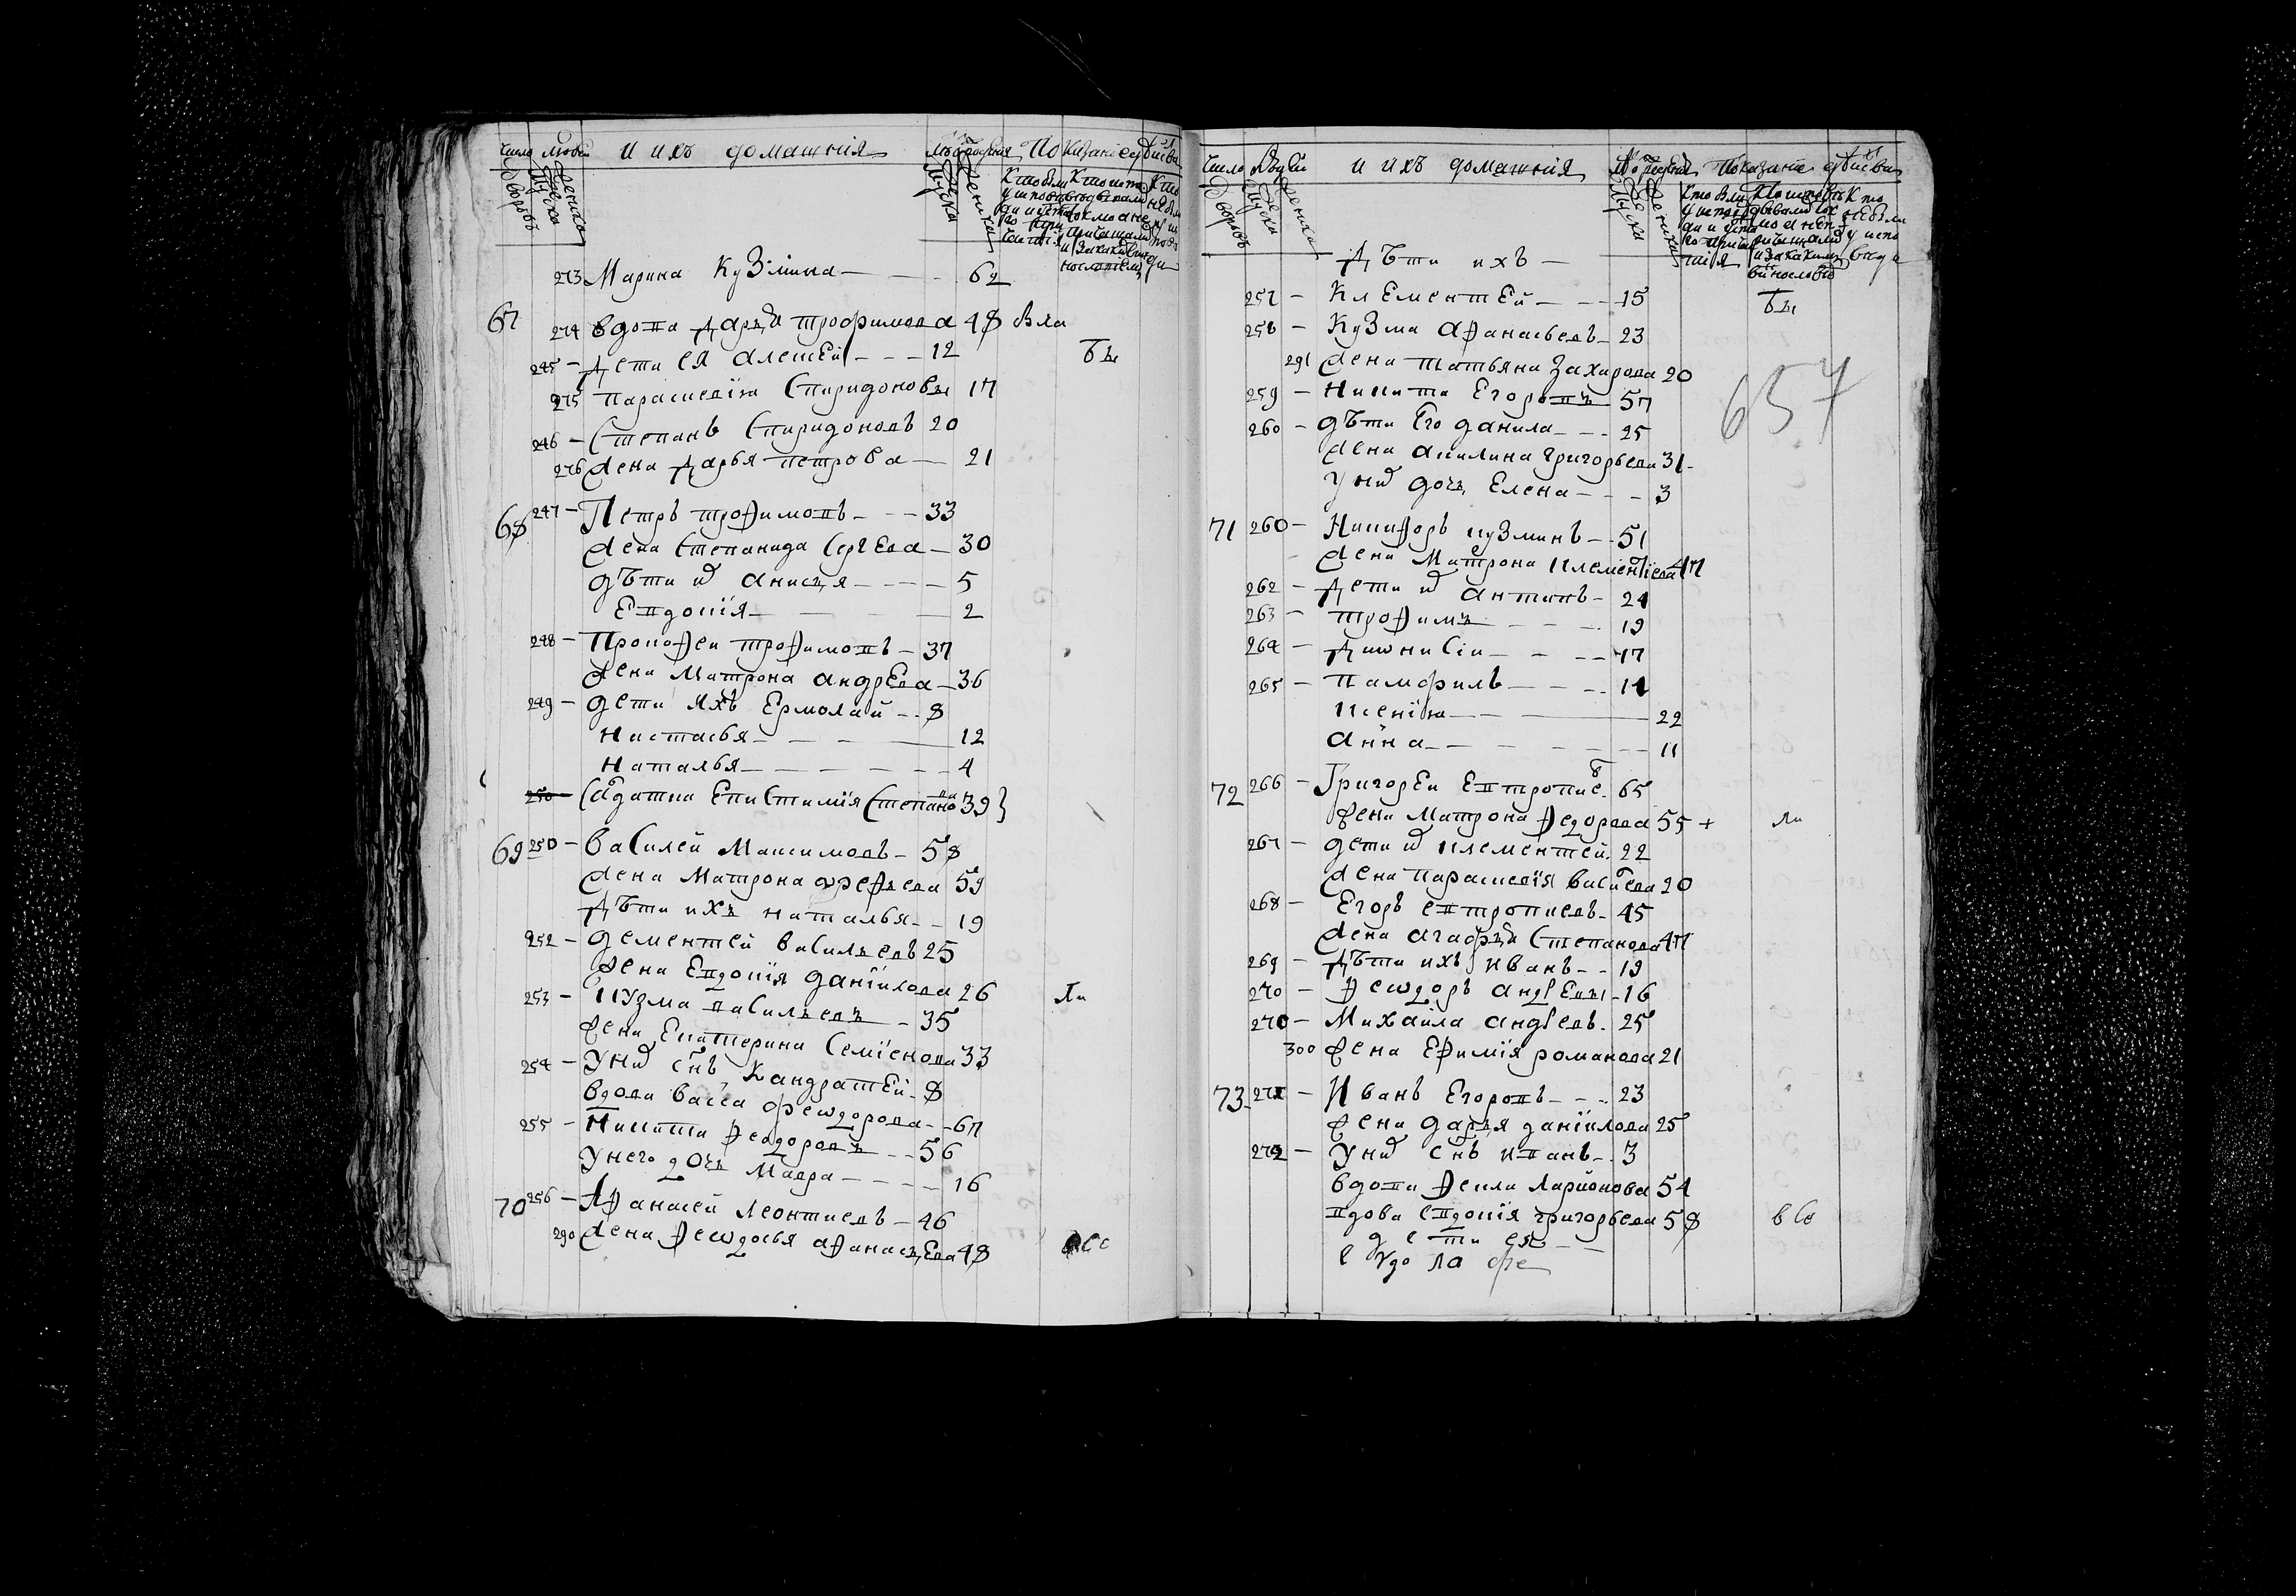 Число Людей И ихъ домашнія Лѣта рожденія Показаніе дѣйства
Дворовъ
Мужеска
Женска
Мужеска
Женска
273 Марина Кузмина — 62
67 274 вдова Дарья трофимова 48 Вли
245 — Дети ея Алексей — 12 Бы
275 параскевія Спиридоновы 17
246 — Степанъ Спиридоновъ 20
276 Жена Дарья петрова — 21
68 247 — Петръ трофимовъ — 33
Жена Степанида Сергѣва — 30
дѣти их анисья — 5
Евдокія — 2
248 — Прокофеи трофимовъ — 37
Жена Матрона андрѣва — 36
249 — дети ихъ Ермолай — 8
Настасья — 12
Наталья — 4
250 — (Салдатка Епистимія Степанова 39)
69 250 — Василей Максимовъ — 58
Жена Матрона арефьева 59
Дѣти ихъ наталья — 19
252 — дементей васильевъ 25
Жена Евдокія данійлова 26
253 — Кузма васильевъ — 35 Ли
Жена Екатерина Семіонова 33
254 — У них снъ Кандратей — 8
вдова васса феодорова — 67
255 — Никита феодоровъ — 56
у него дочь Мавра — 16
70 256 — Афанасей Леонтиевъ — 46
290 Жена Феодосья афанасьева 48 все
Число Людей и ихъ домашнія Лѣта рожденія Показаніе дѣйства
Дворовъ
Мужеска
Женска
Мужеска
Женска
Дѣти ихъ —
257 — Клементей — 15 Бы
258 — Кузма афанасьевъ — 23
291 Жена татьяна Захарова 20
259 — Никита Егоровъ 57
657
260 — дѣти Его данила — 25
Жена акилина григорьева 31 —
у них дочь Елена — 3
71 260 — Никифоръ кузминъ — 51
Жена Матрона клементіева 47
262 — Дети их антипъ — 24
263 — трофимъ — 19
264 — Дионисіи — 17
265 — Памфилъ — 14
Ксенія — 22
анна — 11
72 266 — Григореи Евтропиевъ 65
Жена Матрона Федорова 55 + Ли
267 — дети их клементей — 22
Жена параскевія васильева 20
268 — Егоръ евтропиевъ — 45
Жена агафья Степанова 47
269 — Дѣти ихъ Иванъ — 19
270 — Феодоръ андрѣевъ — 16
270 — Михайла андреевъ — 25
300 Жена Ефимія романова 21
73 271 — Иванъ Егоровъ — 23
Жена дарья данійлова 25
272 — У них снъ иванъ — 3
вдова Фекла Ларионова 54
вдова евдокія григорьева 58 все
дети ея —